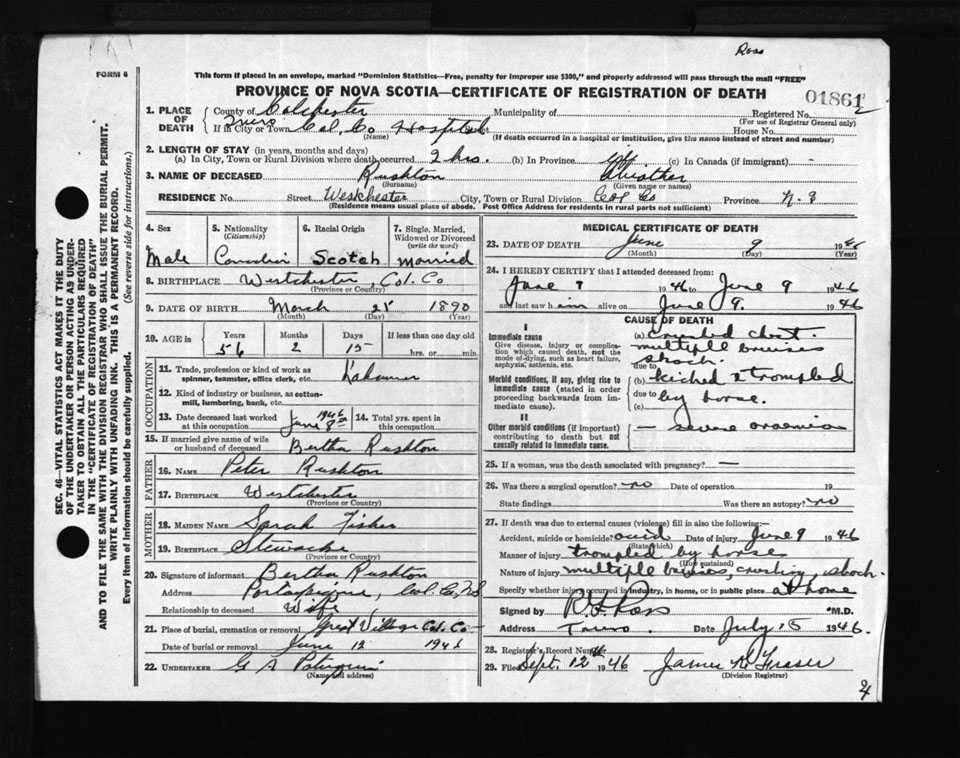 Ross
FORM 6
This form if placed in an envelope, marked "Dominion Statistics—Free, penalty for improper use $300," and properly addressed will pass through the mail "FREE"
PROVINCE OF NOVA SCOTIA—CERTIFICATE OF REGISTRATION OF DEATH
01861
1. PLACE OF DEATH
County of Colchester Municipality of Registered No.
(For use of Registrar General only)
If in City or Town Truro Col. Co Hospital House No.
(Name) (If death occurred in a hospital or institution, give the name instead of street and number)
2. LENGTH OF STAY (in years, months and days)
(a) In City, Town or Rural Division where death occurred 2 hrs. (b) In Province life (c) In Canada (if immigrant) -
3. NAME OF DECEASED Rushton
(Surname) (Given name or names)
RESIDENCE No. Street Westchester City, Town or Rural Division Col Co Province N.S
(Residence means usual place of abode. Post Office Address for residents in rural parts not sufficient)
4. Sex 5. Nationality (Citizenship) 6. Racial Origin 7. Single, Married, Widowed or Divorced (write the word)
Male Canadian Scotch Married
8. BIRTHPLACE Westchester, Col. Co
(Province or Country)
9. DATE OF BIRTH March 25 1890
(Month) (Day) (Year)
10. AGE in Years Months Days If less than one day old
56 2 15 hrs. or min.
OCCUPATION
11. Trade, profession or kind of work as spinner, teamster, office clerk, etc.
12. Kind of industry or business, as cotton-mill, lumbering, bank, etc.
13. Date deceased last worked at this occupation June 8th 1946 14. Total yrs. spent in this occupation
15. If married give name of wife or husband of deceased Bertha Rushton
FATHER
16. NAME Peter Rushton
17. BIRTHPLACE Westchester
(Province or Country)
MOTHER
18. MAIDEN NAME Sarah Fisher
19. BIRTHPLACE Stewiacke
(Province or Country)
20. Signature of informant Bertha Rushton
Address Portaupique, Col. Co, NS
Relationship to deceased Wife
21. Place of burial, cremation or removal Great Village Col. Co—
Date of burial or removal June 12 1946
22. UNDERTAKER G A
(Name and address)
MEDICAL CERTIFICATE OF DEATH
23. DATE OF DEATH June 9 1946
(Month) (Day) (Year)
24. I HEREBY CERTIFY that I attended deceased from:
June 9 1946 to June 9 1946
and last saw him alive on June 9. 1946
CAUSE OF DEATH
I
Immediate cause (a) crushed chest.
Give disease, injury or complication which caused death, not the mode of dying, such as heart failure, asphyxia, asthenia, etc.
multiple bruises
shock.
due to
Morbid conditions, if any, giving rise to immediate cause (stated in order proceeding backwards from immediate cause).
(b) kicked & trampled
due to by horse.
(c)
II
Other morbid conditions (if important) contributing to death but not causally related to immediate cause.
— severe
25. If a woman, was the death associated with pregnancy? —
26. Was there a surgical operation? no Date of operation 19
State findings Was there an autopsy? no
27. If death was due to external causes (violence) fill in also the following:—
Accident, suicide or homicide? accid Date of injury June 9 1946
(State which)
Manner of injury trampled by horses
(How sustained)
Nature of injury multiple bruises, crushing, shock.
Specify whether injury occurred in industry, in home, or in public place at home
Signed by R.F. Ross M.D.
Address Truro. Date July 15 1946.
28. Registrar's Record Number
29. Filed Sept. 12th 1946 James W Fraser
(Division Registrar)
SEC. 46—VITAL STATISTICS ACT MAKES IT THE DUTY
OF THE UNDERTAKER OR PERSON ACTING AS UNDER-
TAKER TO OBTAIN ALL THE PARTICULARS REQUIRED
IN THE "CERTIFICATE OF REGISTRATION OF DEATH"
AND TO FILE THE SAME WITH THE DIVISION REGISTRAR WHO SHALL ISSUE THE BURIAL PERMIT.
WRITE PLAINLY WITH UNFADING INK. THIS IS A PERMANENT RECORD.
Every item of information should be carefully supplied. (See reverse side for instructions.)